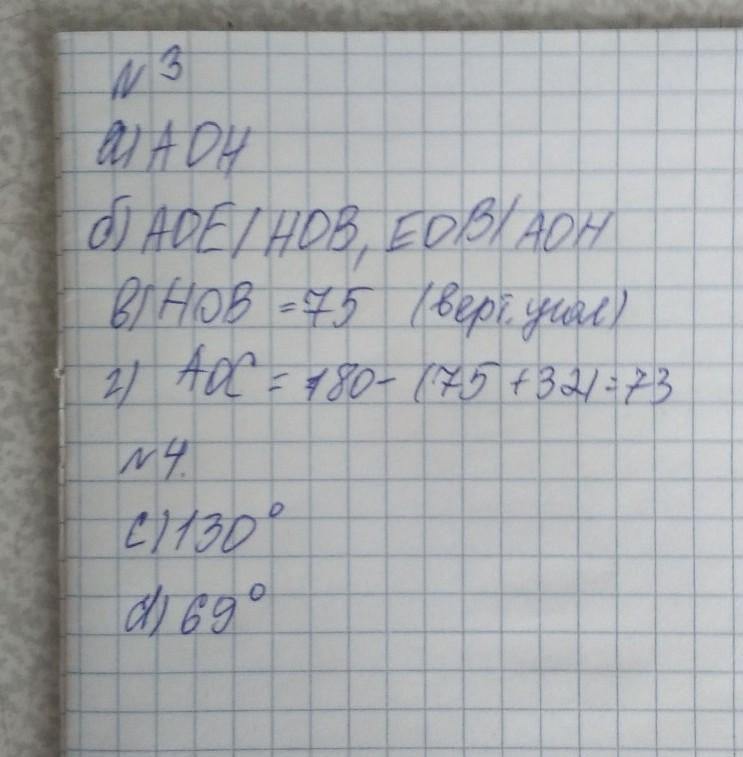 N 3
а) AOH
б) AOE/HOB, EOB/AOH
в) HOB = 75 (верт. угол)
г) AOC = 180 - (75 + 32) = 73
N 4.
c) 130°
d) 69°